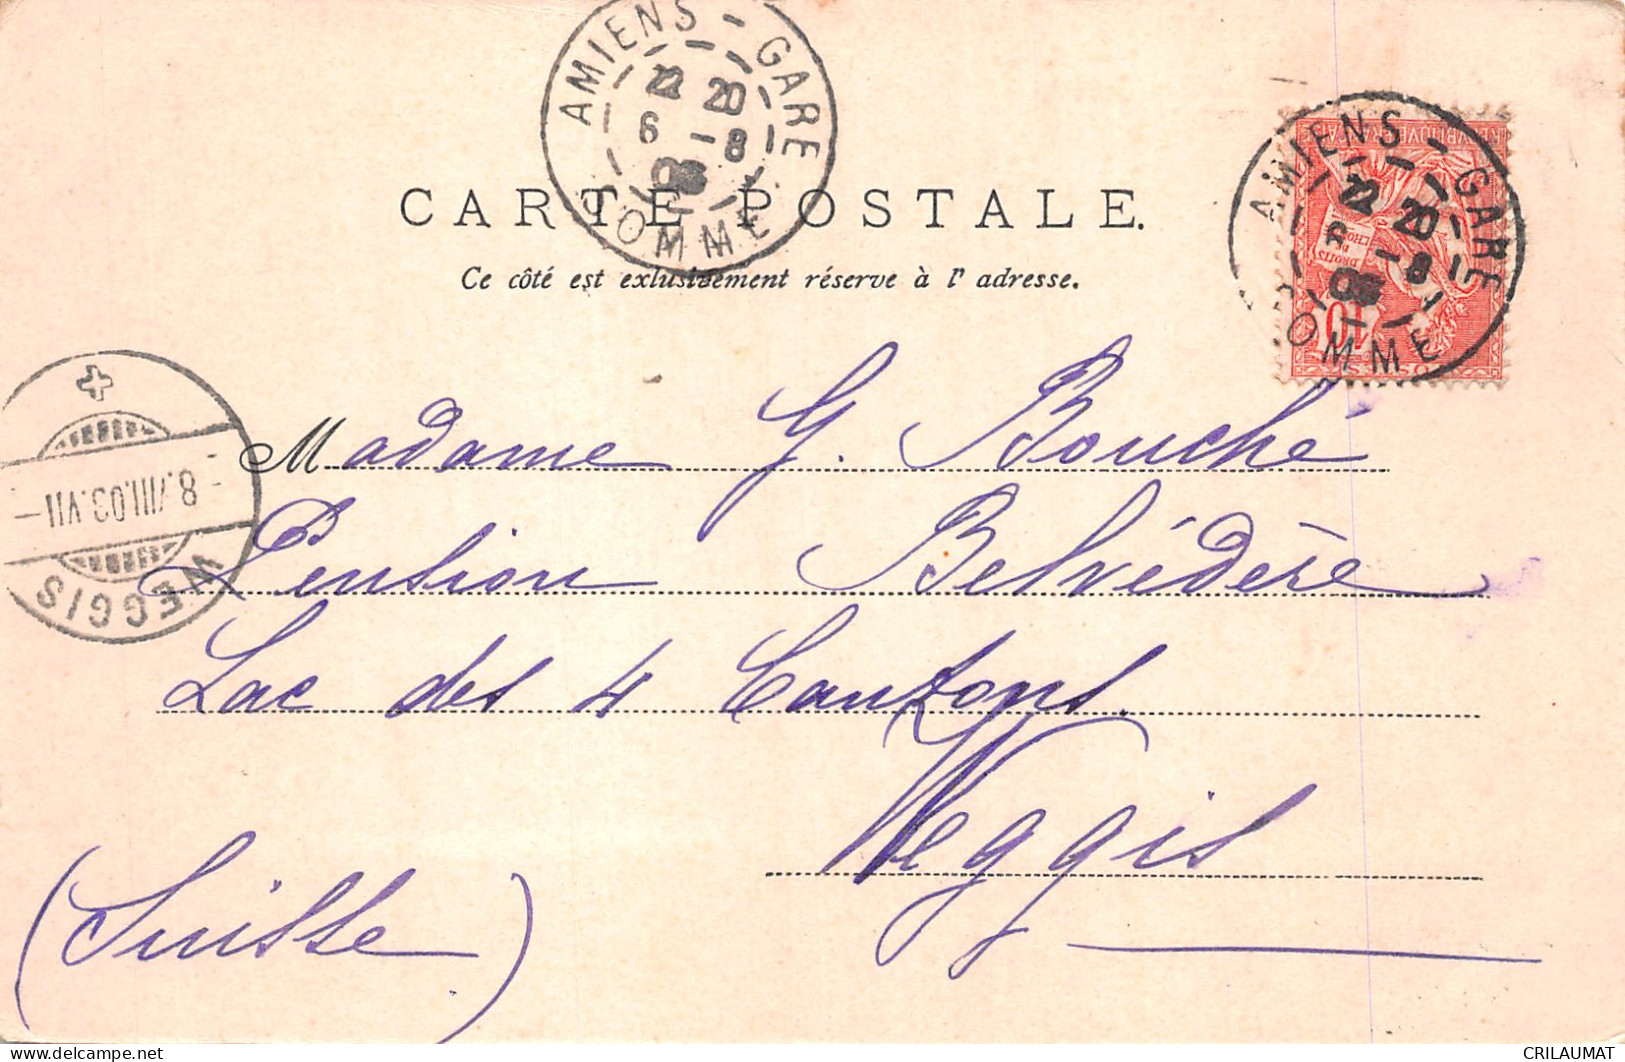 AMIENS - GARE
22 20
6 -8
03
SOMME
CARTE POSTALE.
Ce côté est exlusivement réserve à l' adresse.
AMIENS - GARE
22 20
6 -8
03
SOMME
DROITS
DE
L'HOMME
10
8.VIII.03.VII-
WEGGIS
Madame G. Bouché
Pension Belvédère
Lac des 4 Cantons.
Weggis
(Suisse)
delcampe.net
CRILAUMAT